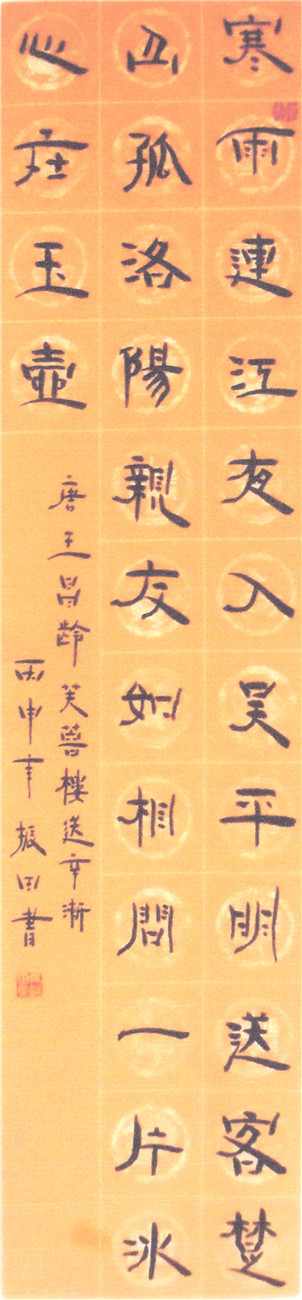 寒雨連江夜入吴平明送客楚
山孤洛陽親友如相問一片冰
心在玉壺
唐王昌龄芙蓉樓送辛漸
丙申年振田書